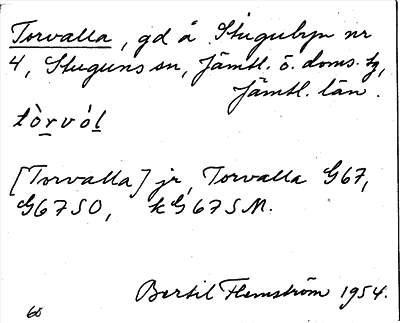 Torvalla, gd å Stugubyn nr
4, Stuguns sn, Jämtl. ö. doms. tg,
Jämtl. län.
tòrvól
[Torvalla] jr, Torvalla G67,
G67SO, kG67SM.
Bertil Flemström 1954.
60